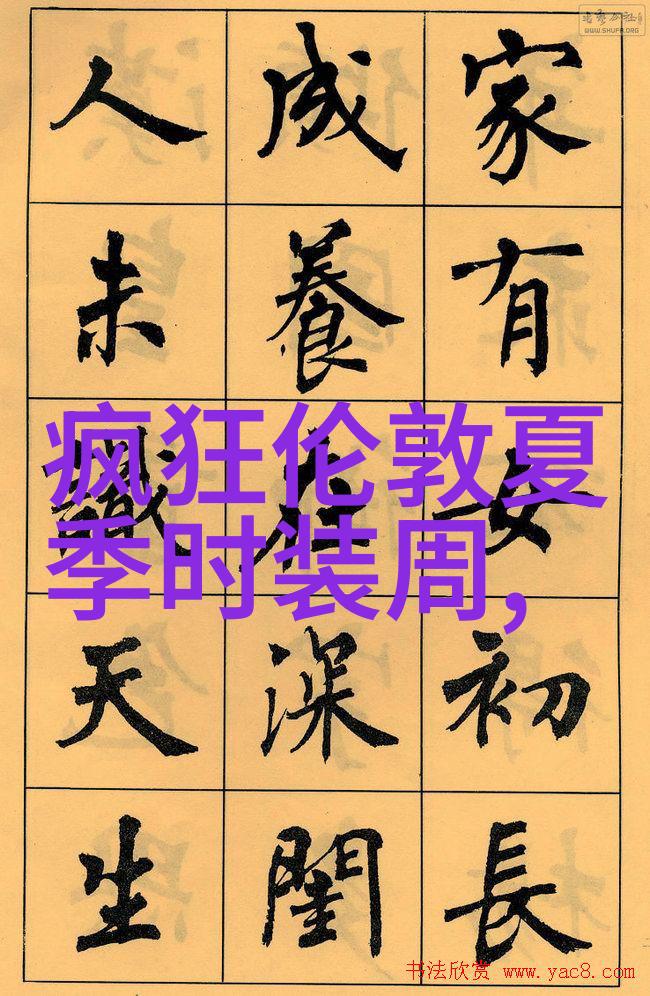 WWW.SHUFA.ORG
家有女初長
成養在深閨
人未識天生
疯狂伦敦夏
季时装周,
书法欣赏 www.yac8.com